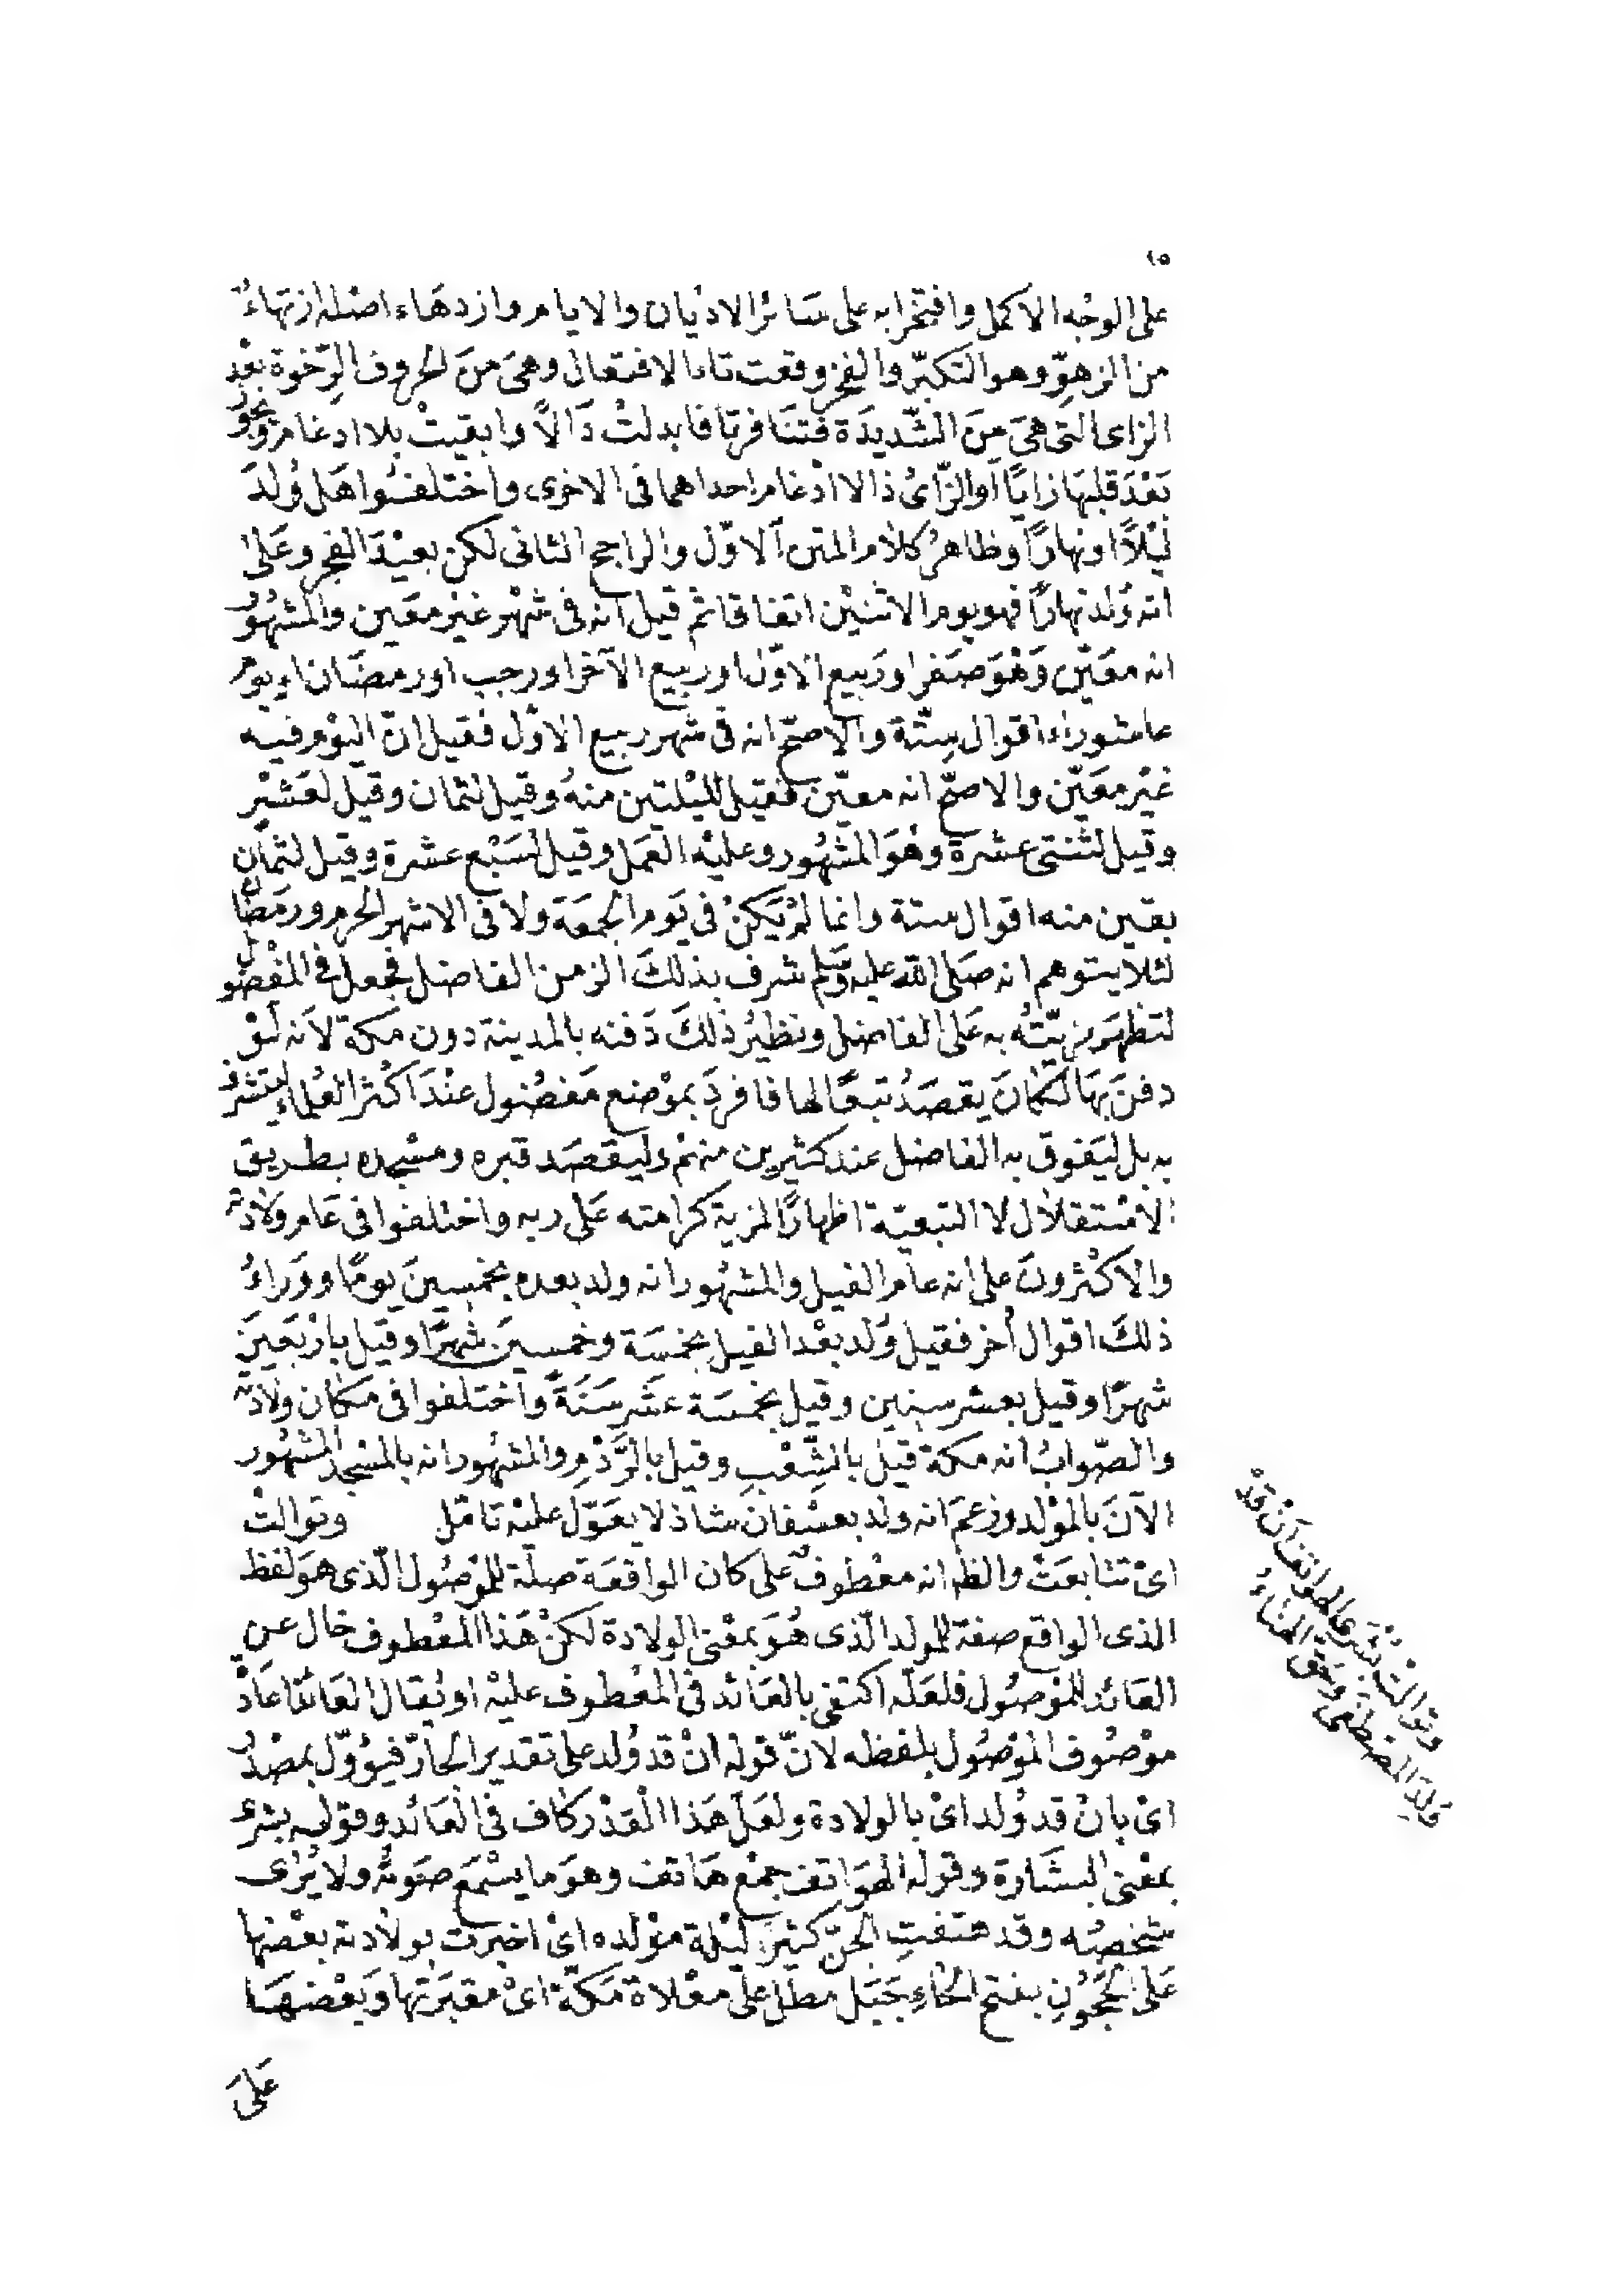 ١٥
على الوجه الاكمل وافتخرابه على سَائر الاديان والايام وازدهَاء اصْله ازتهاءٌ
من الزهوِّ وهو التكبّر والفخر وقعت تاءا الافتعال وهىَ منَ الحروف الرّخوة بعْد
الزاى التى هىَ مِنَ الشّديدَة فتنَافرتا فابدلتْ دَالًا وابقيتْ بلا ادغام ويجوز
بَعْدَ قلبهَا زايًا او الزّاىُ ذالا ادْغام احداهما فى الاخرى واختلفوا هَل وُلدَ
ليْلًا او نهارًا وظاهرُ كلام المتن الاوّل والراجح الثانى لكن بعيْدَ الفجر وعَلىٰ
انه وُلد نهارًا فهو يوم الاثنيْن اتفاقا ثم قيل انه فى شهْر غيْر معَين والمشهُوُر
انه معَيّن وَهْوَ صَفر او رَبيع الاوّل او ربيع الآخر او رجب او رمضَان او يوم
عاشوراء اقوال ستّة والاصحّ انه فى شهر ربيع الاوّل فقيل انّ اليوْم فيه
غيْر معَيّن والاصحّ انه معيّن فقيل لليْلتين منهُ وقيل لثمان وقيل لعَشْر
وقيل لثنتى عشرة وهْوَ المشهُور وعليْه العَمَل وقيل لسَبْع عشرة وقيل لثمَان
بقين منه اقوال ستة وانما لمْ يَكنْ فى يَوم الجمعَة ولا فى الاشهر الحرم ورمَضَان
لئلا يتوهم انه صَلى الله عليه وسَلم شرف بذلكَ الزمن الفاضل فجعل فى المفْضول
لتظهَر مزيّتُه به عَلى الفاضل ونظيْرُ ذلكَ دَفنه بالمدينة دون مكة لانه لوْ
دفنَ بهَا لكانَ يقصَدُ تبعًا لها فافردَ بموْضع مَفضُول عنْدَ اكْثر العُلماء ليتشرف
به بل ليَفوق به الفاضل عند كثيرين منهمْ وليقصَد قبره ومسْجده بطريق
الاسْتقلال لا التبعيّة اظهارًا لمزية كرامته عَلى ربه واختلفوا فى عَام ولادته
والاكثرونَ على انه عام الفيل والمشهُور انه ولد بعده بخمسينَ يومًا ووَراءُ
ذلكَ اقوال أخر فقيل وُلد بعْد الفيل بخمسَة وخمسينَ شهرًا وقيل بارْبَعينَ
شهرًا وقيل بعشر سنين وقيل بخمسَة عَشر سَنَةً واختلفوا فى مكان ولادته
والصّوابُ انه مكة قيل بالشِّعْبِ وقيل بالرَّدْمِ والمشهُور انه بالمسْجد المشهُور
الآنَ بالموْلد وزعمَ انه ولد بعسْفان شاذ لا يعَوّل عليْه تامّل وتوالتْ
اىْ تتابعَتْ والظ انه معْطوفٌ على كان الواقعَة صلة للموْصُول الّذى هوَ لفظ
الذى الواقع صفة للمولد الّذى هُوَ بمعْنى الولادة لكنْ هَذا المعْطوف خال عن
العَائد للموْصُول فلعَله اكتفى بالعَائد فى المعْطوف عليْه او يُقال العَائد اعَادْ
موْصُوف الموْصُول بلفظه لانّ قوله انْ قد وُلد على تقدير الجارّ فيؤوّل بمصْدرُ
اىْ بانْ قد وُلد اىْ بالولادة ولعَلّ هَذا القدْر كاف فى العَائد وقوله بشرى
بمعْنى البشَارة وقوله الهوَاتف جمْع هَاتف وهوَ ما يسْمَع صَوته ولا يُرى
شخصُه وقد هتفتِ الجنّ كثيرًا ليْلة موْلده اىْ اخبرت بولادته بعْضها
عَلى الحَجُونِ بفتح الحَاءِ جَبَل مطل على معْلاة مَكّة اىْ مقبَرَتها وَبَعْضهَا
عَلىَ
وتوالتْ بُشْرى الهواتف أنْ قدْ
وُلِدَ المصْطفى وحَقّ الهنَاءُ